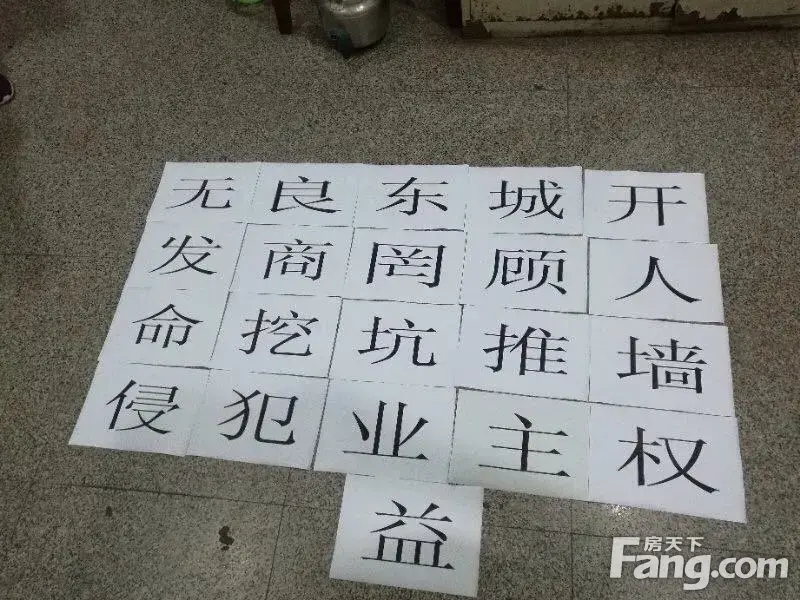 无良东城开
发商罔顾人
命挖坑推墙
侵犯业主权
益
房天下
Fang.com